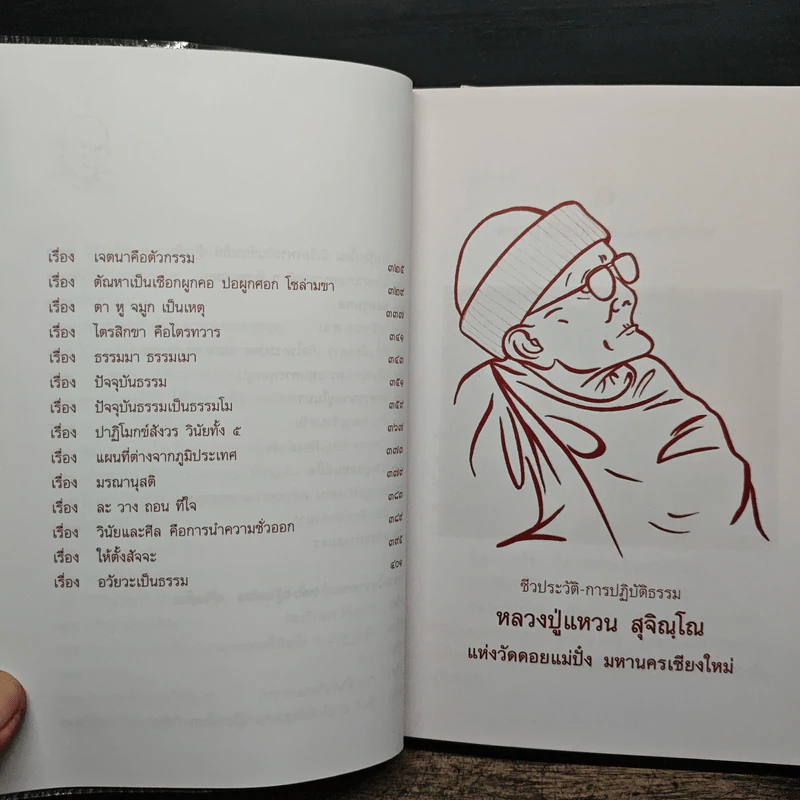 เรื่อง เจตนาคือตัวกรรม ๓๒๕
เรื่อง ตัณหาเป็นเชือกผูกคอ ปอผูกศอก โซ่ล่ามขา ๓๒๙
เรื่อง ตา หู จมูก เป็นเหตุ ๓๓๗
เรื่อง ไตรสิกขา คือไตรทวาร ๓๔๑
เรื่อง ธรรมมา ธรรมเมา ๓๔๓
เรื่อง ปัจจุบันธรรม ๓๕๑
เรื่อง ปัจจุบันธรรมเป็นธรรมโม ๓๕๙
เรื่อง ปาฏิโมกข์สังวร วินัยทั้ง ๕ ๓๖๗
เรื่อง แผนที่ต่างจากภูมิประเทศ ๓๗๓
เรื่อง มรณานุสติ ๓๗๙
เรื่อง ละ วาง ถอน ที่ใจ ๓๘๓
เรื่อง วินัยและศีล คือการนำความชั่วออก ๓๘๙
เรื่อง ให้ตั้งสัจจะ ๓๙๕
เรื่อง อวัยวะเป็นธรรม ๔๐๑
ชีวประวัติ-การปฏิบัติธรรม
หลวงปู่แหวน สุจิณฺโณ
แห่งวัดดอยแม่ปั๋ง มหานครเชียงใหม่